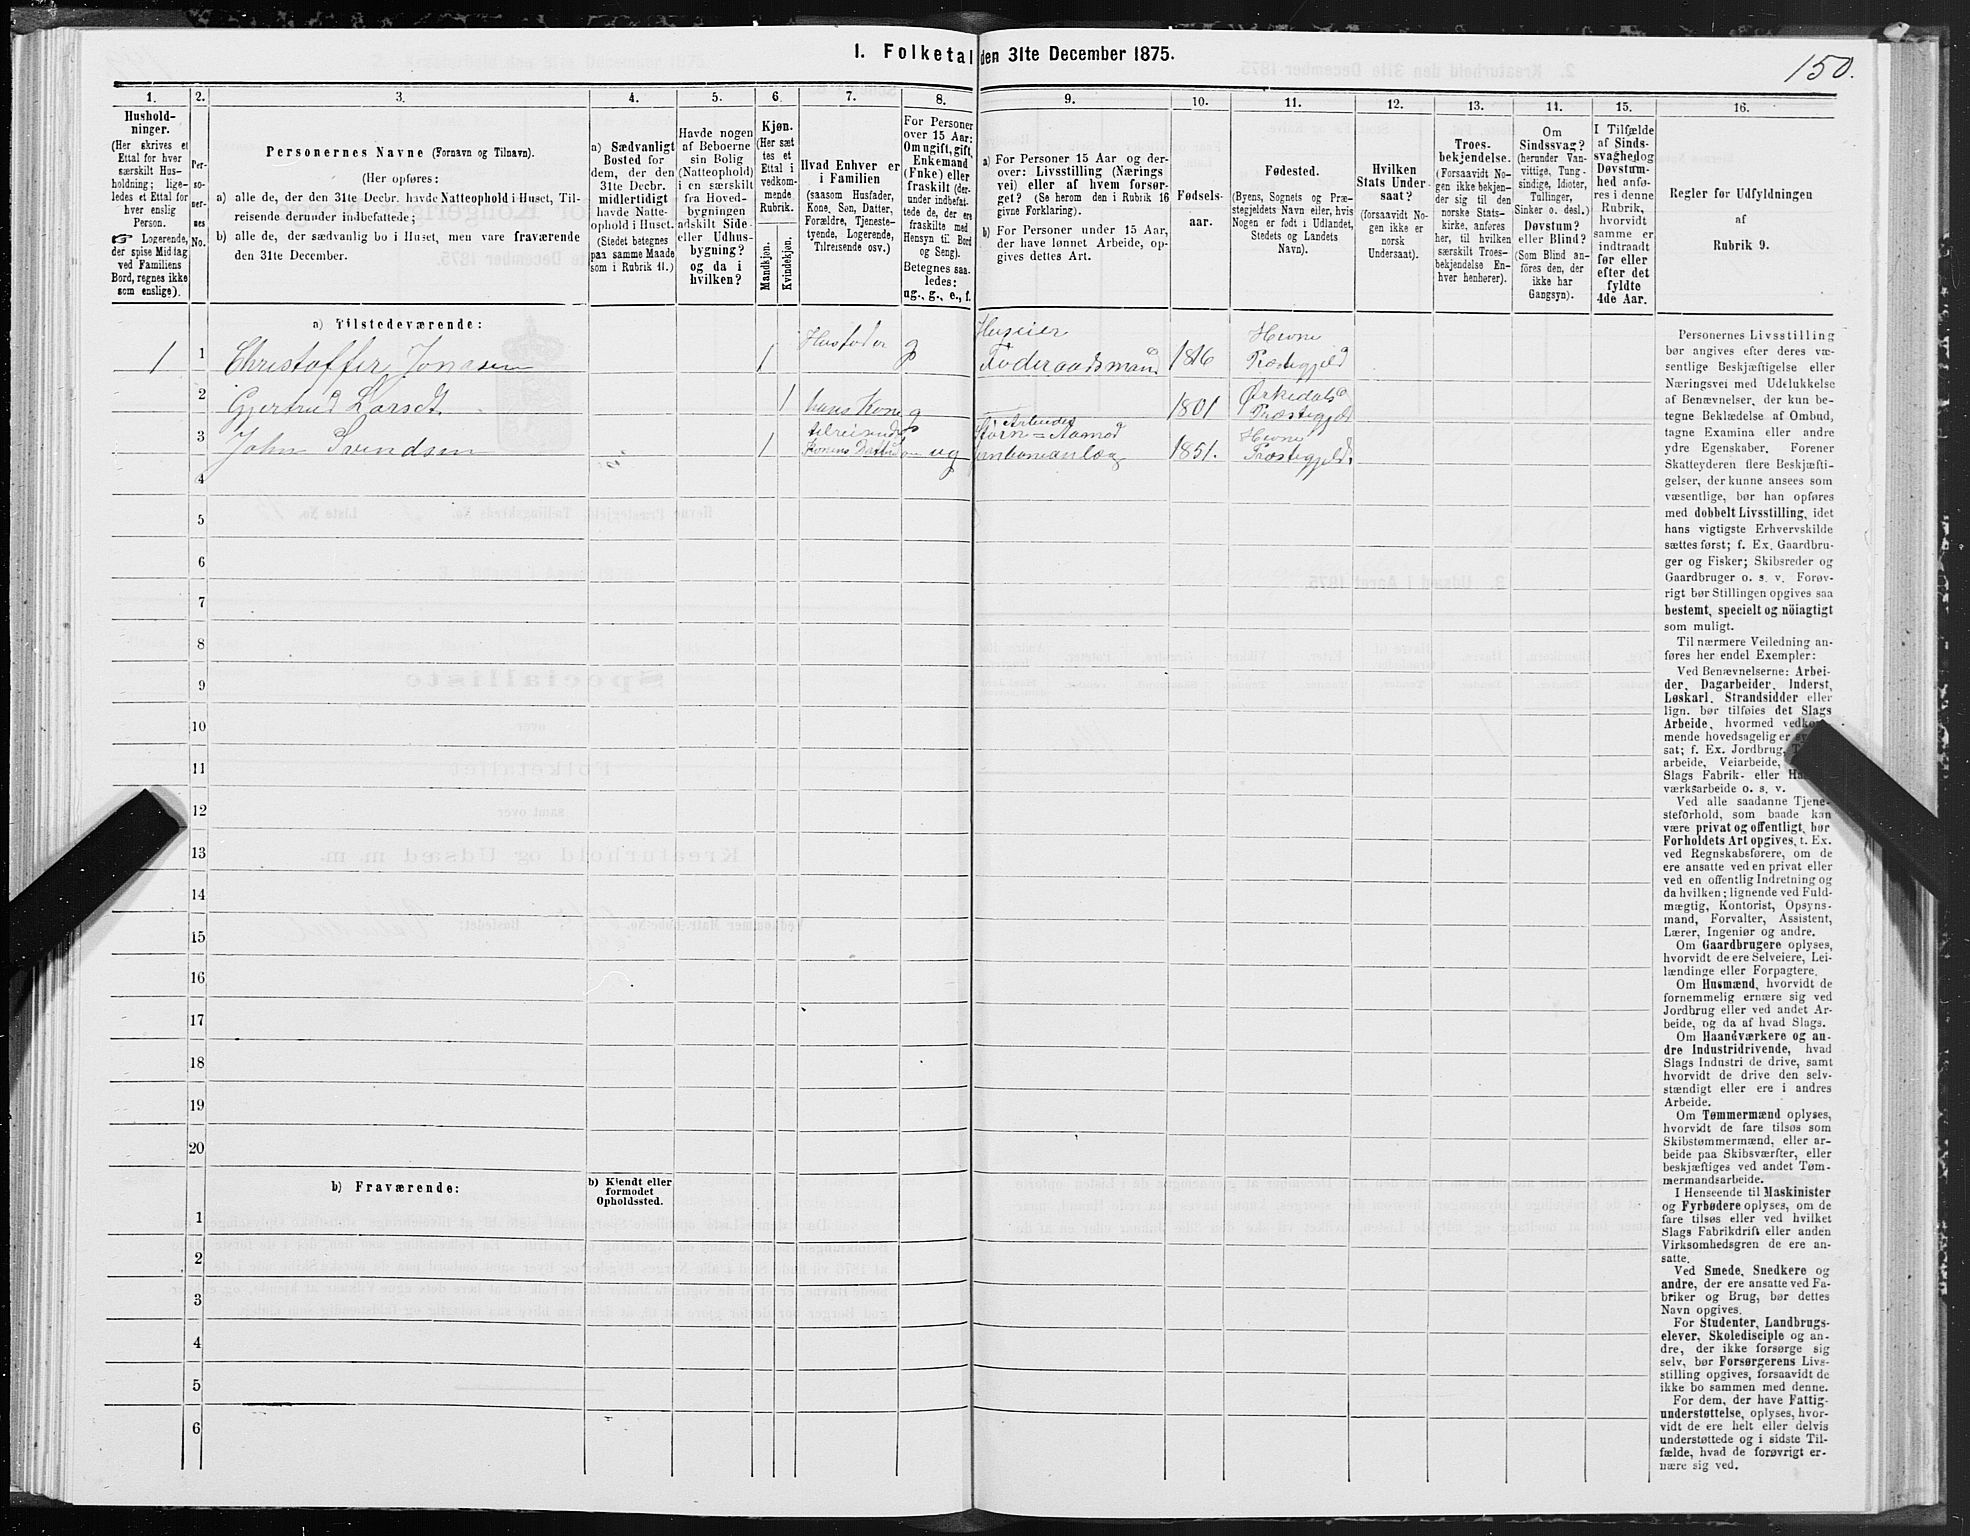 I. Folketal den 31te December 1875.
150.
1.
2.
3.
4.
5.
6.
7.
8.
9.
10.
11.
12.
13.
14.
15.
16.
Hushold-
ninger.
(Her skrives et
Ettal for hver
særskilt Hus-
holdning; lige-
ledes et Ettal for
hver enslig
Person.
☞ Logerende,
der spise Middag
ved Familiens
Bord, regnes ikke
som enslige).
Per-
so-
ner-
nes
No.
Personernes Navne (Fornavn og Tilnavn).
(Her opføres:
a) alle de, der den 31te Decbr. havde Natteophold i Huset, Til-
reisende derunder indbefattede;
b) alle de, der sædvanlig bo i Huset, men vare fraværende
den 31te December.
a) Sædvanligt
Bosted for
dem, der den
31te Decbr.
midlertidigt
havde Natte-
ophold i Huset.
(Stedet betegnes
paa samme Maade
som i Rubrik 11.)
Havde nogen
af Beboerne
sin Bolig
(Natteophold)
i en særskilt
fra Hoved-
bygningen
adskilt Side-
eller Udhus-
bygning?
og da i
hvilken?
Kjøn.
(Her sæt-
tes et
Ettal i
vedkom-
mende
Rubrik.
Mandkjøn.
Kvindekjøn.
Hvad Enhver er
i Familien
(saasom Husfader,
Kone, Søn, Datter,
Forældre, Tjeneste-
tyende, Logerende,
Tilreisende osv.)
For Personer
over 15 Aar:
Om ugift, gift,
Enkemand
(Enke) eller
fraskilt (der-
under indbefat-
tede de, der ere
fraskilte med
Hensyn til Bord
og Seng).
Betegnes saa-
ledes:
ug., g., e., f.
a) For Personer 15 Aar og der-
over: Livsstilling (Nærings-
vei) eller af hvem forsør-
get? (Se herom den i Rubrik 16
givne Forklaring).
b) For Personer under 15 Aar,
der have lønnet Arbeide, op-
gives dettes Art.
Fødsels-
aar.
Fødested.
(Byens, Sognets og Præ-
stegjeldets Navn eller, hvis
Nogen er født i Udlandet,
Stedets og Landets
Navn).
Hvilken
Stats Under-
saat?
(forsaavidt No-
gen ikke er
norsk
Undersaat).
Troes-
bekjendelse.
(Forsaavidt No-
gen ikke bekjen-
der sig til den
norske Stats-
kirke, anføres
her, til hvilken
særskilt Troes-
bekjendelse En-
hver henhører).
Om
Sindssvag?
(herunder Van-
vittige, Tung-
sindige, Idioter,
Tullinger,
Sinker o. desl.)
Døvstum?
eller Blind?
(Som Blind an-
føres den, der
ikke har
Gangsyn).
I Tilfælde
af Sinds-
svaghed og
Døvstum-
hed anfø-
res i denne
Rubrik,
hvorvidt
samme er
indtraadt
før eller
efter det
fyldte
4de Aar.
Regler for Udfyldningen
af
Rubrik 9.
a) Tilstedeværende:
1 1 Christoffer Jonasen 1 Husfader g Huseier Føderaadsmand 1816 Hevne Præstegjeld
2 Gjertrud Larsdt. 1 hans Kone g 1801 Ørkedals Præstegjeld
3 John Svendsen 1 tilreisende Konens ug Arbeider 1851. Hevne Præstegjeld.
4
5
6
7
8
9
10
11
12
13
14
15
16
17
18
19
20
b) Fraværende:
b) Kjendt eller
formodet
Opholdssted.
1
2
3
4
5
6
Personernes Livsstilling
bør angives efter deres væ-
sentlige Beskjæftigelse eller
Næringsvei med Udelukkelse
af Benævnelser, der kun be-
tegne Beklædelse af Ombud,
tagne Examina eller andre
ydre Egenskaber. Forener
Skatteyderen flere Beskjæfti-
gelser, der kunne ansees som
væsentlige, bør han opføres
med dobbelt Livsstilling, idet
hans vigtigste Erhvervskilde
sættes først; f. Ex. Gaardbru-
ger og Fisker; Skibsreder og
Gaardbruger o. s. v. Forøv-
rigt bør Stillingen opgives saa
bestemt, specielt og nöiagtigt
som muligt.
Til nærmere Veiledning an-
føres her endel Exempler:
Ved Benævnelserne: Arbei-
der, Dagarbeider, Inderst,
Løskarl, Strandsidder eller
lign. bør tilføies det Slags
Arbeide, hvormed
mende hovedsagelig er
sat; f. Ex. Jordbrug,
arbeide, Veiarbeide,
Slags Fabrik- eller
værksarbeide o. s. v.
Ved alle saadanne Tjene-
steforhold, som baade kan
være privat og offentligt, bør
Forholdets Art opgives, t. Ex.
ved Regnskabsførere, om de
ere ansatte ved en privat eller
ved en offentlig Indretning og
da hvilken; lignende ved Fuld-
mægtig, Kontorist, Opsyns-
mand, Forvalter, Assistent,
Lærer, Ingeniør og andre.
Om Gaardbrugere oplyses,
hvorvidt de ere Selveiere, Lei-
lændinge eller Forpagtere.
Om Husmænd, hvorvidt de
fornemmelig ernære sig ved
Jordbrug eller ved andet Ar-
beide, og da af hvad Slags.
Om Haandværkere og an-
dre Industridrivende, hvad
Slags Industri de drive, samt
hvorvidt de drive den selv-
stændigt eller ere i andres
Arbeide.
Om Tømmermænd oplyses,
hvorvidt de fare tilsøs som
Skibstømmermænd, eller ar-
beide paa Skibsværfter, eller
beskjæftiges ved andet Tøm-
mermandsarbeide.
I Henseende til Maskinister
og Fyrbødere oplyses, om de
fare tilsøs eller ved hvilket
Slags Fabrikdrift eller anden
Virksomhedsgren de ere an-
satte.
Ved Smede, Snedkere og
andre, der ere ansatte ved Fa-
briker og Brug, bør dettes
Navn opgives.
For Studenter, Landbrugs-
elever, Skoledisciple og an-
dre, der ikke forsørge sig
selv, bør Forsørgerens Livs-
stilling opgives, forsaavidt de
ikke bo sammen med denne.
For dem, der have Fattig-
understøttelse, oplyses, hvor-
vidt de ere helt eller delvis
understøttede og i sidste Til-
fælde, hvad de forøvrigt er-
nære sig ved.